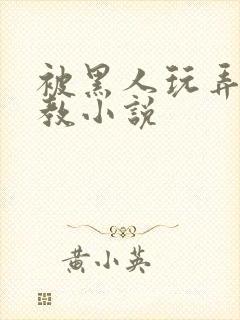 被黑人玩弄
教小说
黄小英